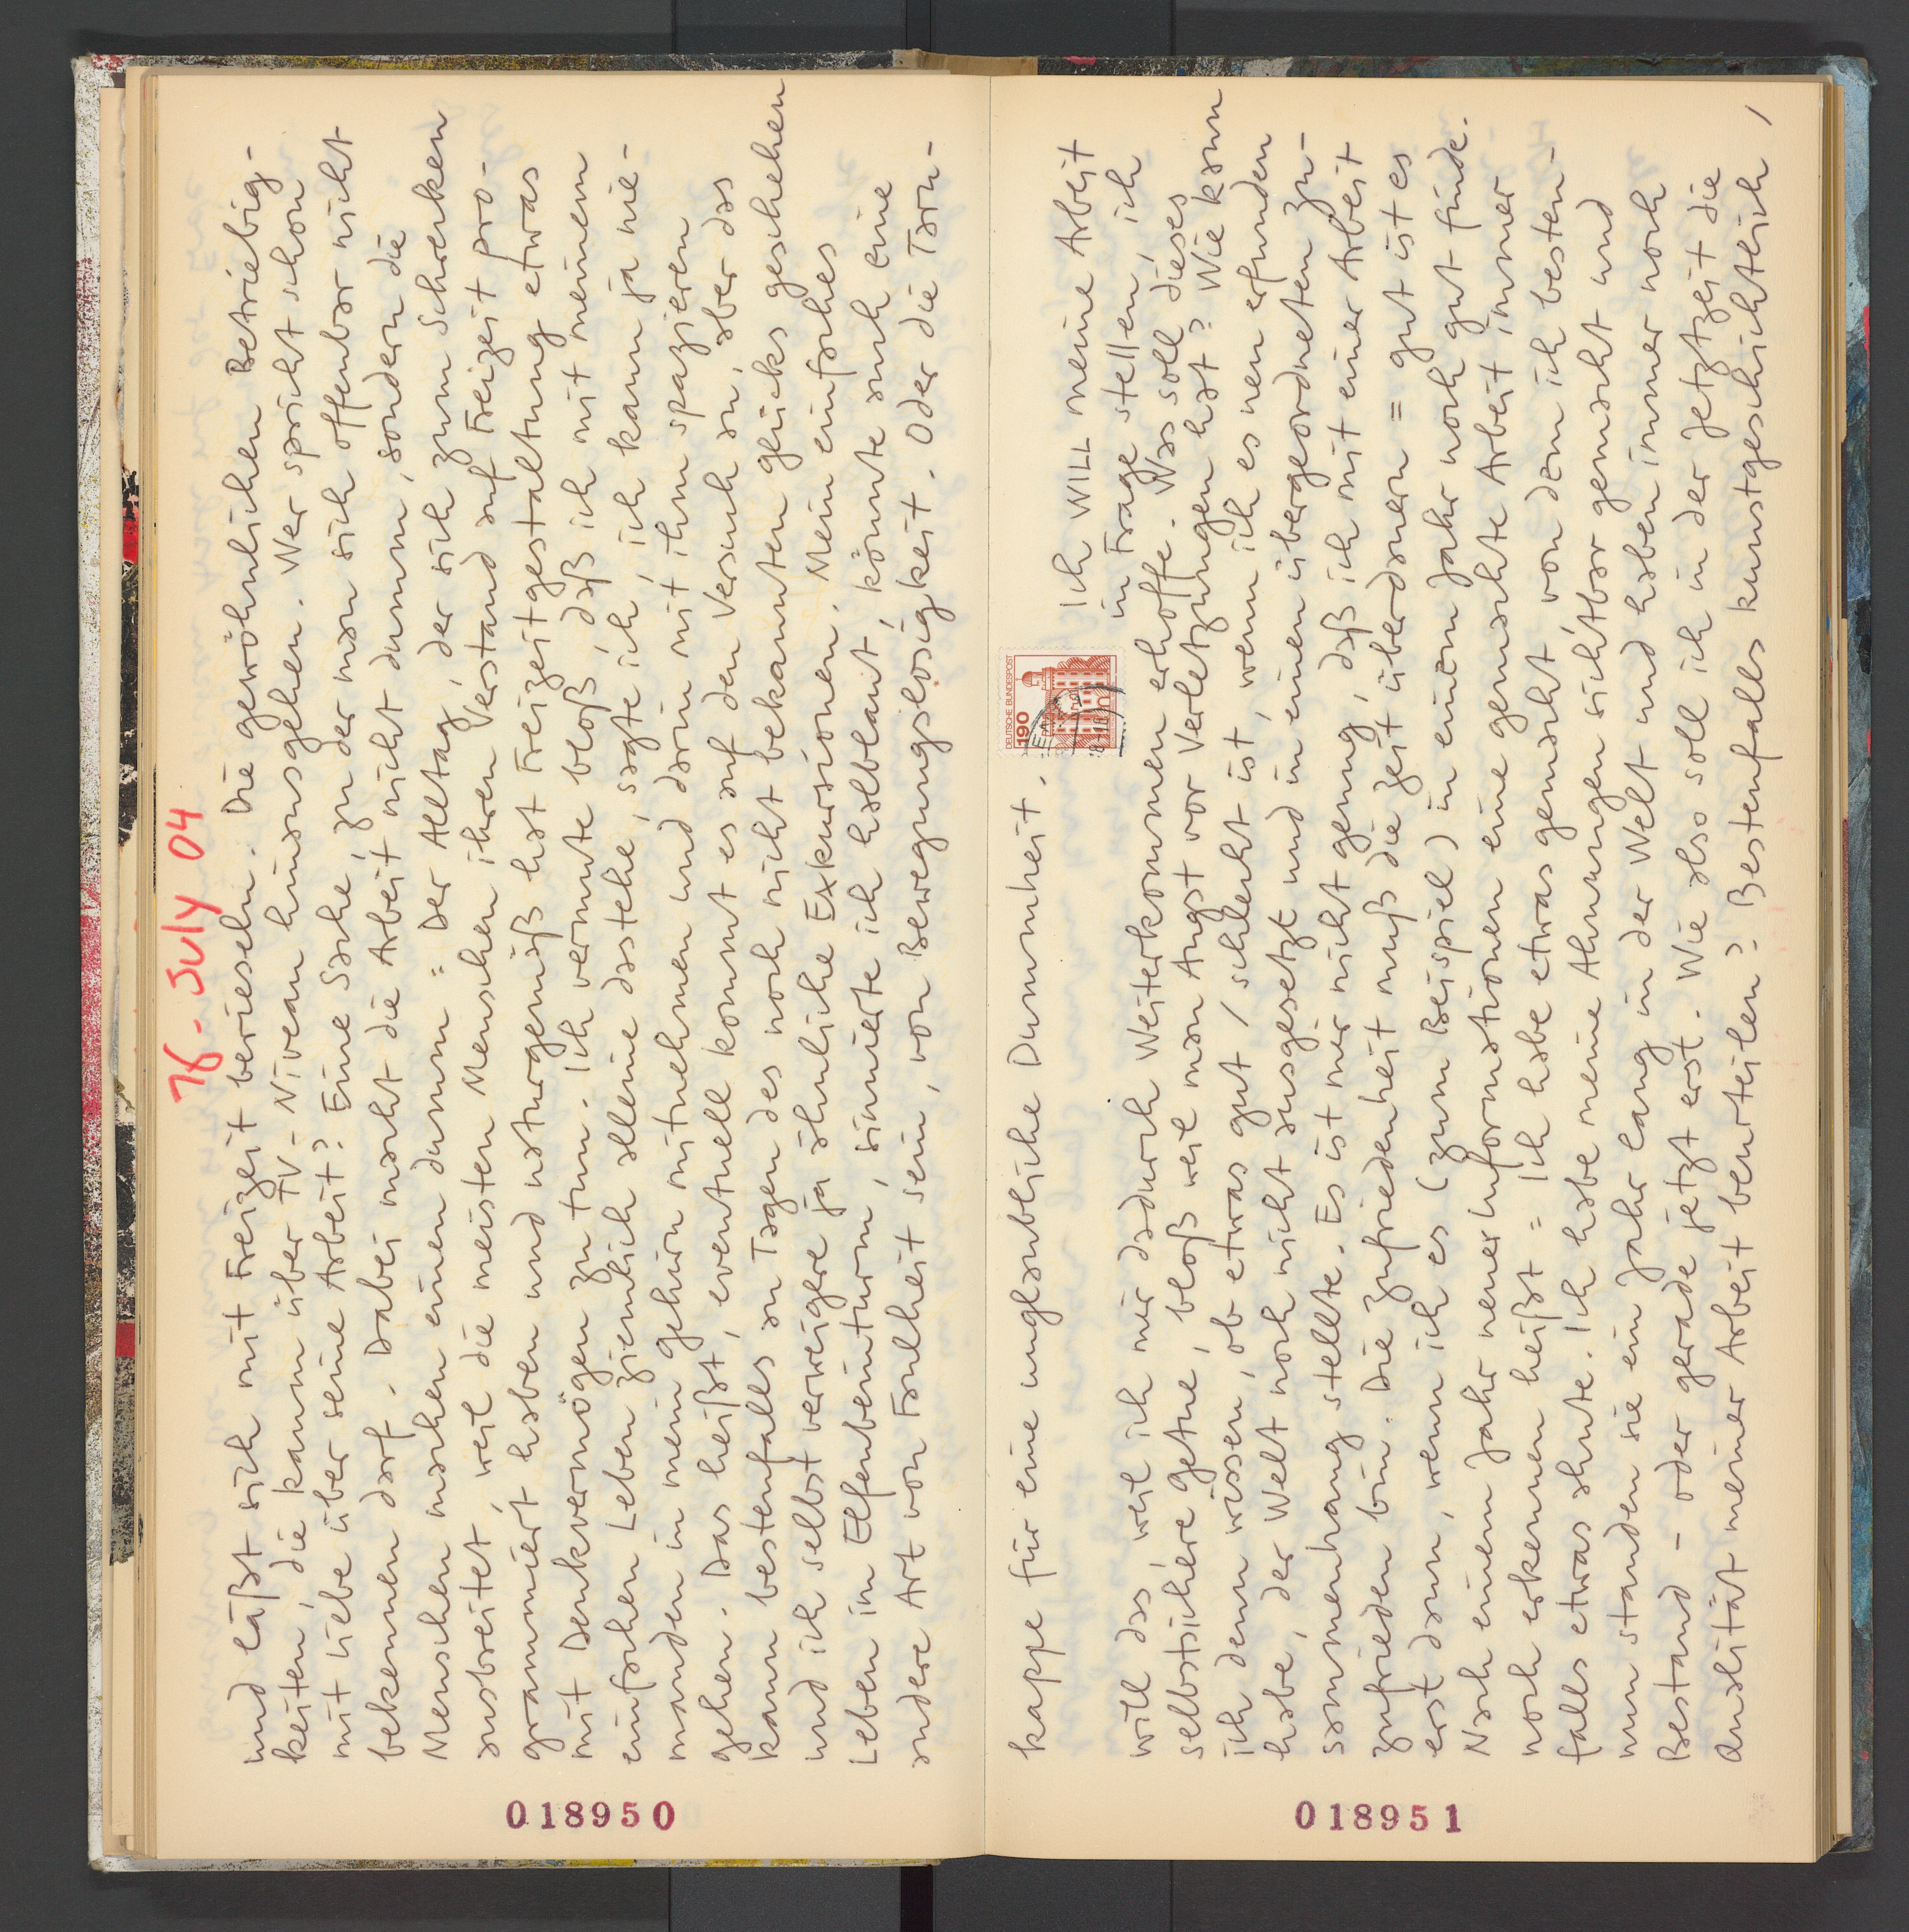 78 - July 04
und läßt sich mit Freizeit berieseln. Die gewöhnlichen Betriebig-
keiten, die kaum über TV-Niveau hinausgehen. Wer spricht schon
mit Liebe über seine Arbeit? Eine Sache, zu der man sich offenbar nicht
bekennen darf. Dabei macht die Arbeit nicht dumm, sondern die
Menschen machen einen dumm = Der Alltag, der sich zum Schrecken
ausbreitet, weil die meisten Menschen ihren Verstand auf Freizeit pro-
grammiert haben und naturgemäß hat Freizeitgestaltung etwas
mit Denkvermögen zu tun. Ich vermute bloß, daß ich mit meinem
einfachen Leben ziemlich alleine dastehe, sagte ich, ich kann ja nie-
manden in mein Gehirn mitnehmen und darin mit ihm spazieren
gehen. Das heißt, eventuell kommt es auf den Versuch an, aber das
kann bestenfalls an Tagen des noch nicht bekannten Glücks geschehen
und ich selbst verweigere ja ähnliche Exkursionen. Mein einfaches
Leben im Elfenbeinturm, sinnierte ich halblaut, könnte auch eine
andere Art von Faulheit sein, von Bewegungslosigkeit. Oder die Tarn-
018950
kappe für eine unglaubliche Dummheit.
DEUTSCHE BUNDESPOST
190
Ich WILL meine Arbeit
in Frage stellen, ich
will das, weil ich mir dadurch Weiterkommen erhoffe. Was soll dieses
selbstsichere Getue, bloß weil man Angst vor Verletzungen hat? Wie kann
ich denn wissen, ob etwas gut / schlecht ist, wenn ich es neu erfunden
habe, der Welt noch nicht ausgesetzt und in einen übergeordneten Zu-
sammenhang stellte. Es ist mir nicht genug, daß ich mit einer Arbeit
zufrieden bin. Die Zufriedenheit muß die Zeit überdauern = gut ist es
erst dann, wenn ich es (zum Beispiel) in einem Jahr noch gut finde.
Nach einem Jahr neuer Informationen eine gemachte Arbeit immer
noch erkennen heißt = Ich habe etwas gemacht, von dem ich besten-
falls etwas ahnte. Ich habe meine Ahnungen sichtbar gemacht und
nun standen sie ein Jahr lang in der Welt und haben immer noch
Bestand - oder gerade jetzt erst. Wie also soll ich in der Jetztzeit die
Qualität meiner Arbeit beurteilen? Bestenfalls kunstgeschichtlich,
018951